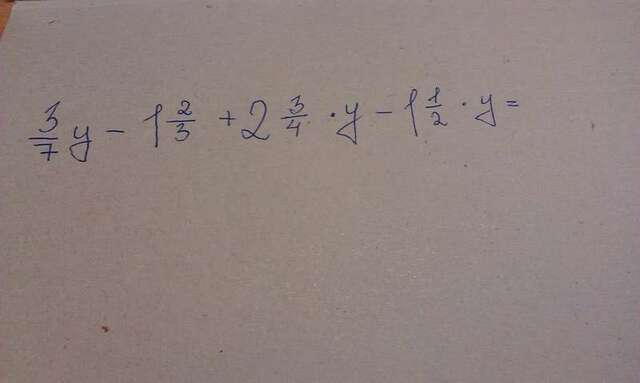 3/7 y - 1 2/3 + 2 3/4 · y - 1 1/2 · y =